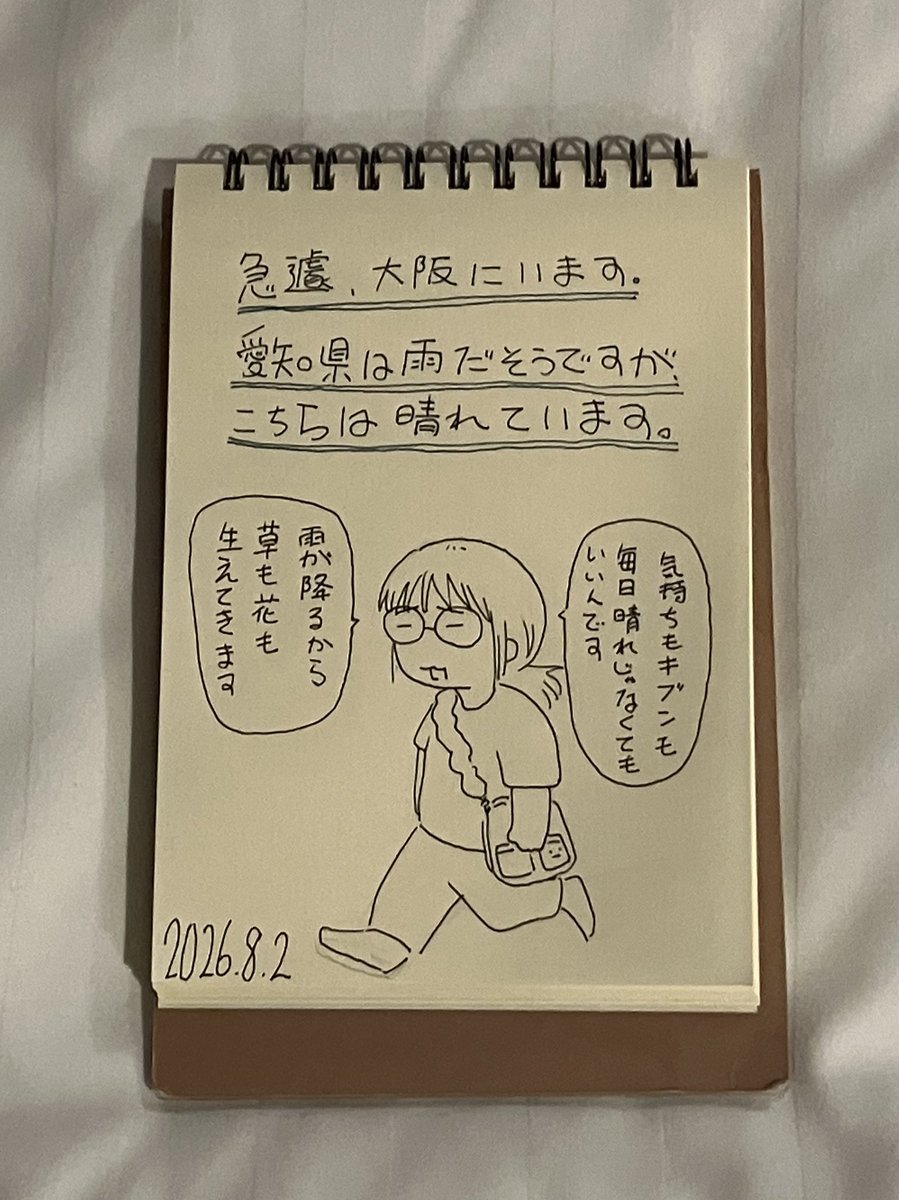 急遽、大阪にいます。
愛知県は雨だそうですが、
こちらは晴れています。
気持ちもキブンも
毎日晴れじゃなくても
いいんです
雨が降るから
草も花も
生えてきます
2026.8.2